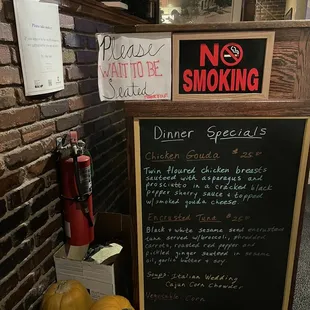 Please
WAIT TO BE
Seated
NO
SMOKING
Dinner Specials
Chicken Gouda $25
Twin floured chicken breasts
sautéed with asparagus and
prosciutto in a cracked black
pepper sherry sauce & topped
w/smoked gouda cheese
Encrusted Tuna $26
Black & white sesame seed encrusted
tuna served w/broccoli, shredded
carrots, roasted red pepper and
pickled ginger served in sesame
oil, garlic butter & soy
Soups: Italian Wedding
Cajun Corn Chowder
Vegetable Corn